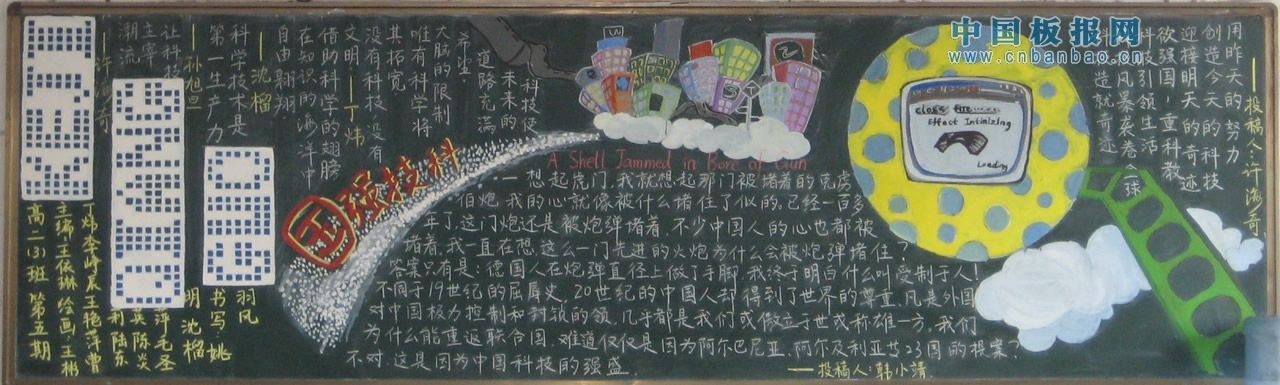 中国板报网
www.cnbanbao.cn
用昨天的努力
创造今天的科技
迎接明天的奇迹
欲强国，重科教
科技引领生活
风暴袭卷全球
造就奇迹
——投稿人:计海奇
close
Effect Intimizing
Loading
科技使
未来的
道路充满
希望
大脑的限制
唯有科学将
其拓宽
没有科技没有
文明——丁炜
借助科学的翅膀
在知识的海洋中
自由翱翔
——沈榴
科学技术是
第一生产力
——孙旭
让科技
主宰
潮流
科技强国
A Shell Jammed in Bore of Gun
一想起虎门，我就想起那门被堵着的克虏
伯炮，我的心就像被什么堵住了似的。已经一百多
年了，这门炮还是被炮弹堵着，不少中国人的心也都被
堵着。我一直在想，这么一门先进的火炮为什么会被炮弹堵住?
答案只有是：德国人在炮弹直径上做了手脚，我终于明白什么叫受制于人!
不同于19世纪的屈辱史，20世纪的中国人却得到了世界的尊重，凡是外国
对中国极力控制和封锁的领，几乎都是我们或傲立于世或称雄一方，我们
为什么能重返联合国，难道仅仅是因为阿尔巴尼亚、阿尔及利亚等23国的投案?
不对，这是因为中国科技的强盛
——投稿人:韩小靖
高二(3)班 第五期
主编:王依琳 绘画:王彬
丁炜 李峰辰 王艳萍 曹
书写:姚
羽凤
明 沈榴